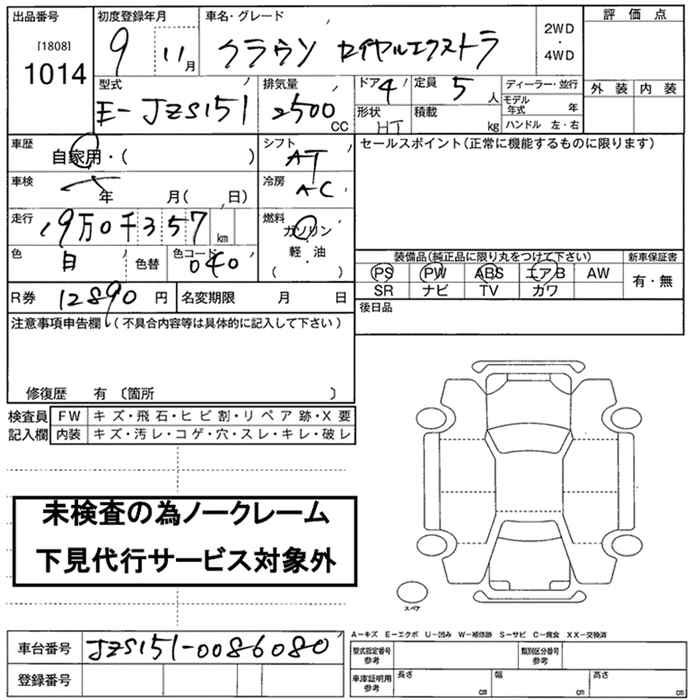 出品番号 初度登録年月 車名・グレード 評価点
[1808] 9 11月 クラウン ロイヤルエクストラ 2WD・4WD
1014 外装 内装
型式 排気量 ドア 4 定員 5人 ディーラー・並行
E-JZS151 2500CC 形状 HT 積載 kg モデル年式 年
ハンドル 左・右
車歴 シフト セールスポイント(正常に機能するものに限ります)
自家用・( ) AT
車検 冷房
年 月( 、日) AC
走行 燃料
19万0千357km ガソリン
色 色替 色コード 軽・油
白 040 ( ・ )
装備品(純正品に限り丸をつけて下さい) 新車保証書
PS PW ABS エアB AW 有・無
SR ナビ TV カワ
R券 12890円 名変期限 月 日 後日品
注意事項申告欄(不具合内容等は具体的に記入して下さい)
修復歴 有 〔箇所 〕
検査員 FW キズ・飛石・ヒビ割・リペア跡・X要
記入欄 内装 キズ・汚レ・コゲ・穴・スレ・キレ・破レ
未検査の為ノークレーム
下見代行サービス対象外
スペア
A-キズ E-エクボ U-凹み W-補修跡 S-サビ C-腐食 XX-交換済
車台番号 JZS151-0086080 型式指定番号 参考 類別区分番号 参考
登録番号 車庫証明用 参考 長さ cm 幅 cm 高さ cm